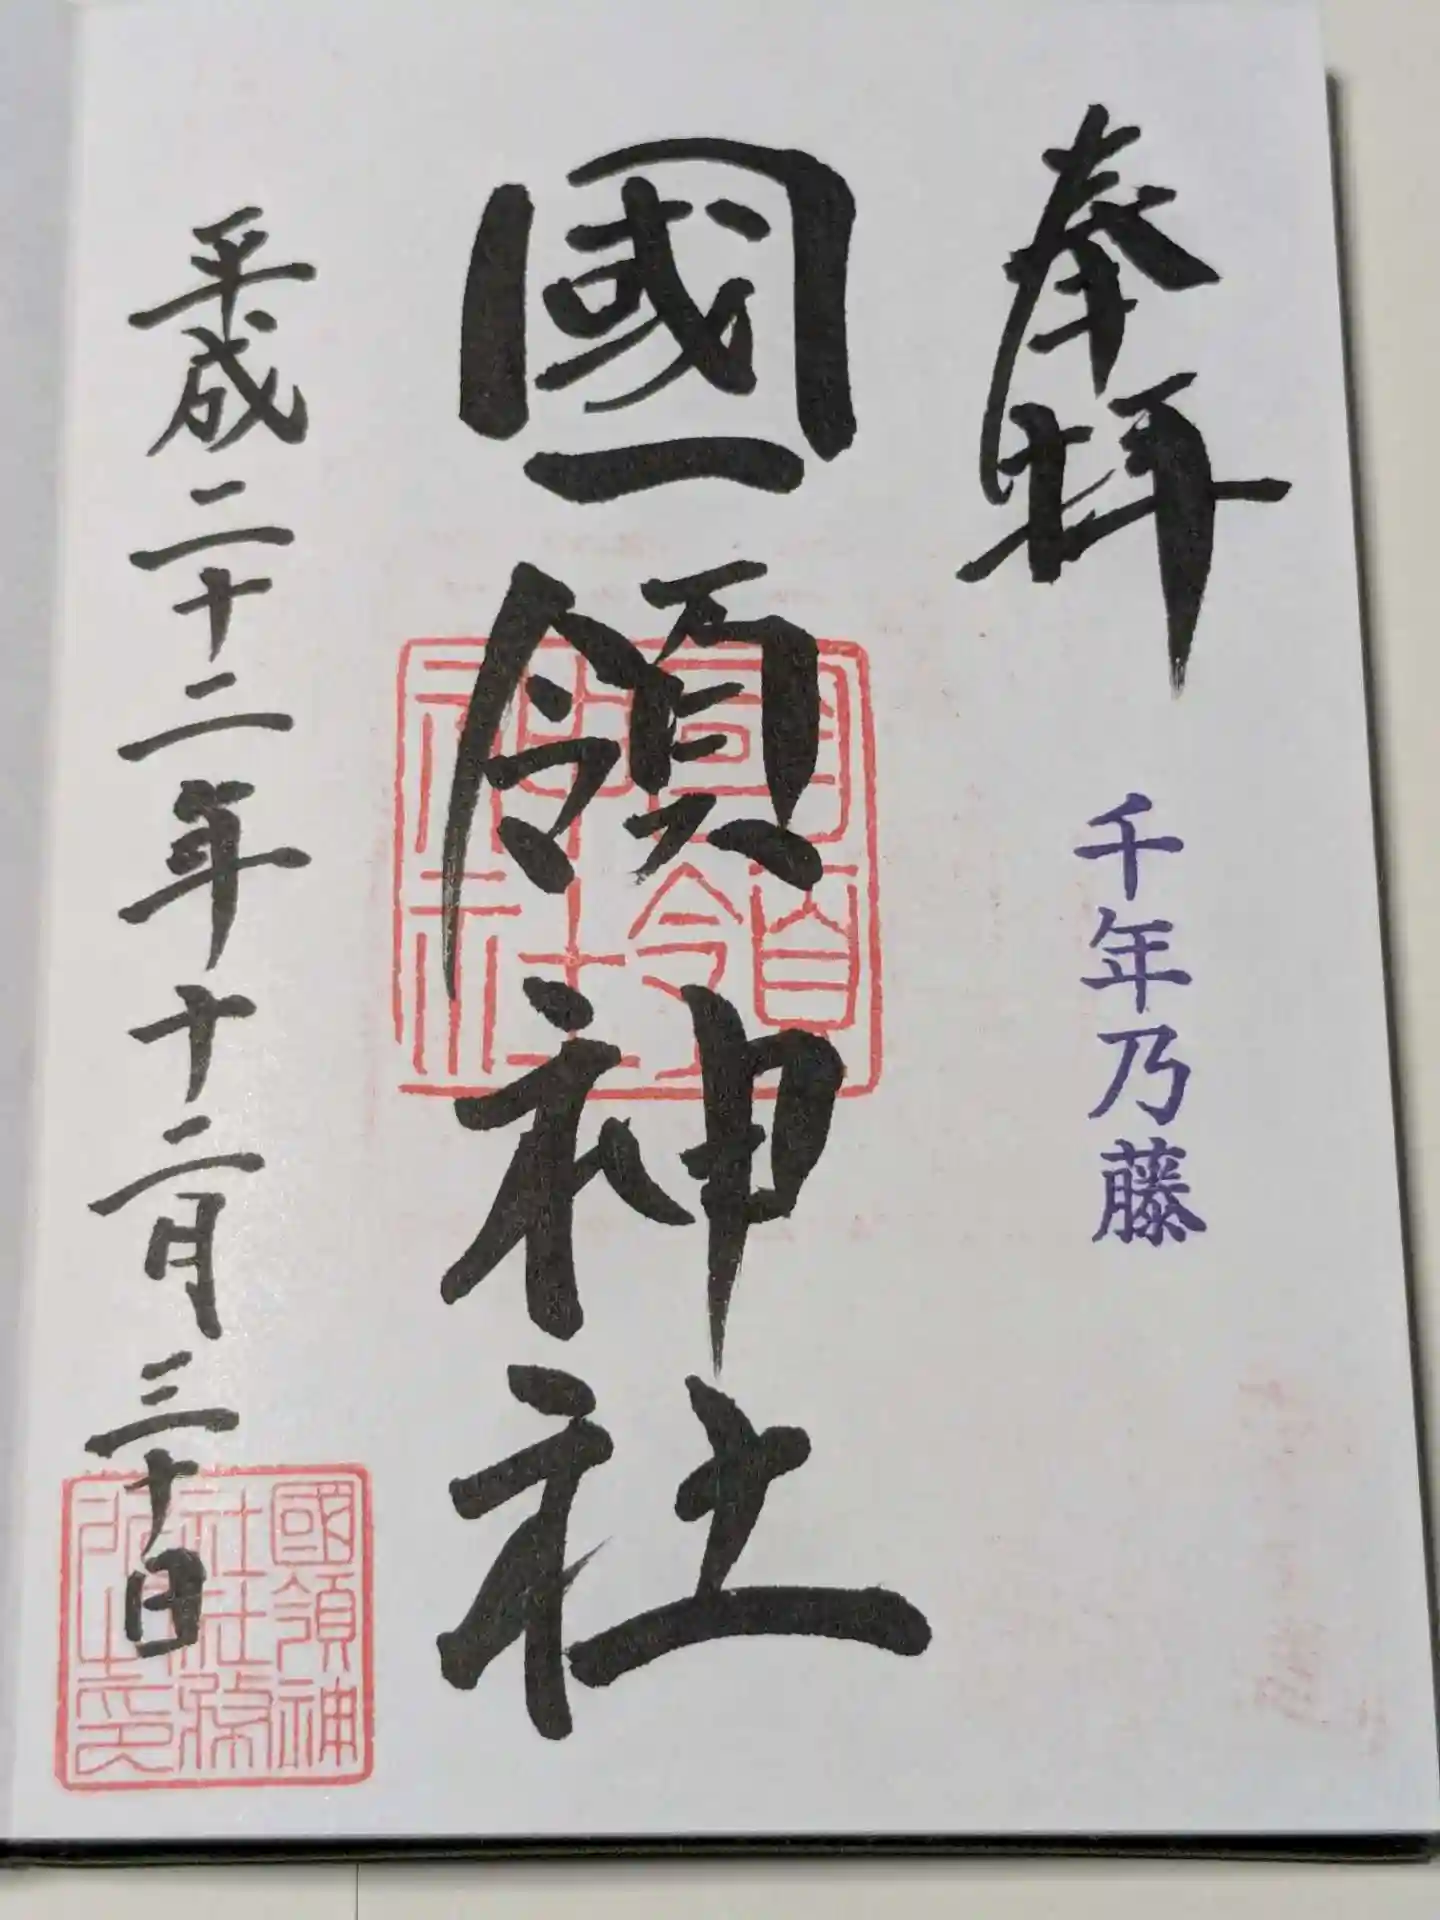 奉拝
千年乃藤
國領神社
國領神社
平成二十二年十二月三十日
國領神
社社務
所之印